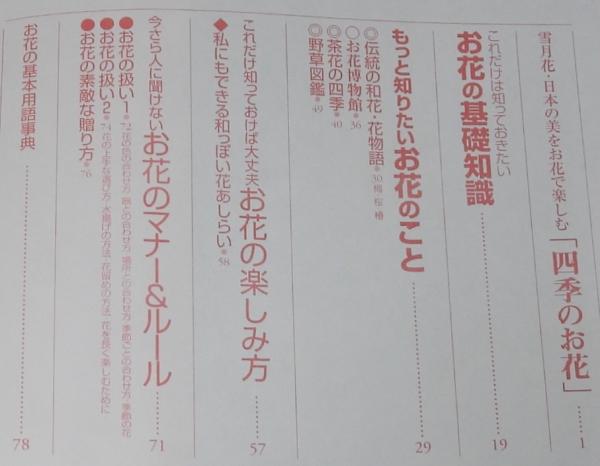 雪月花・日本の美をお花で楽しむ「四季のお花」……1
これだけは知っておきたい
お花の基礎知識……19
もっと知りたいお花のこと……29
◎伝統の和花・花物語*30 梅 桜 椿
◎お花博物館*36
◎茶花の四季*40
◎野草図鑑*49
これだけ知っておけば大丈夫お花の楽しみ方……57
◆私にもできる和っぽい花あしらい*58
今さら人に聞けないお花のマナー&ルール……71
●お花の扱い1*72 花の色の合わせ方・器との合わせ方・場所との合わせ方・季節ごとの合わせ方・季節の花
●お花の扱い2*74 花の上手な選び方・水揚げの方法・花留めの方法・花を長く楽しむために
●お花の素敵な贈り方*76
お花の基本用語事典……78